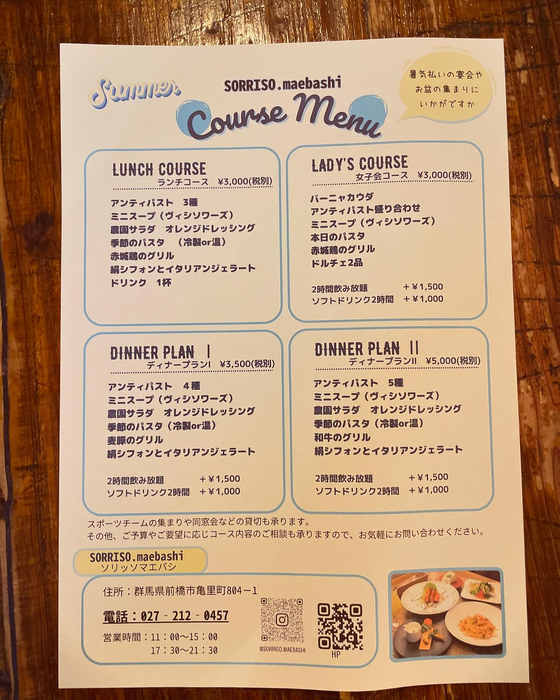 Summer
SORRISO.maebashi
Course Menu
暑気払いの宴会や
お盆の集まりに
いかがですか
LUNCH COURSE
ランチコース ¥3,000(税別)
アンティパスト 3種
ミニスープ(ヴィシソワーズ)
農園サラダ オレンジドレッシング
季節のパスタ (冷製or温)
赤城鶏のグリル
絹シフォンとイタリアンジェラート
ドリンク 1杯
LADY'S COURSE
女子会コース ¥3,000(税別)
バーニャカウダ
アンティパスト盛り合わせ
ミニスープ(ヴィシソワーズ)
本日のパスタ
赤城鶏のグリル
ドルチェ2品
2時間飲み放題 +¥1,500
ソフトドリンク2時間 +¥1,000
DINNER PLAN I
ディナープランI ¥3,500(税別)
アンティパスト 4種
ミニスープ(ヴィシソワーズ)
農園サラダ オレンジドレッシング
季節のパスタ(冷製or温)
麦豚のグリル
絹シフォンとイタリアンジェラート
2時間飲み放題 +¥1,500
ソフトドリンク2時間 +¥1,000
DINNER PLAN II
ディナープランII ¥5,000(税別)
アンティパスト 5種
ミニスープ(ヴィシソワーズ)
農園サラダ オレンジドレッシング
季節のパスタ(冷製or温)
和牛のグリル
絹シフォンとイタリアンジェラート
2時間飲み放題 +¥1,500
ソフトドリンク2時間 +¥1,000
スポーツチームの集まりや同窓会などの貸切も承ります。
その他、ご予算やご要望に応じコース内容のご相談も承りますので、お気軽にお問い合わせください。
SORRISO.maebashi
ソリッソマエバシ
住所:群馬県前橋市亀里町804−1
電話:027‐212‐0457
営業時間:11:00〜15:00
17:30〜21:30
@SORRISO.MAEBASHI
HP